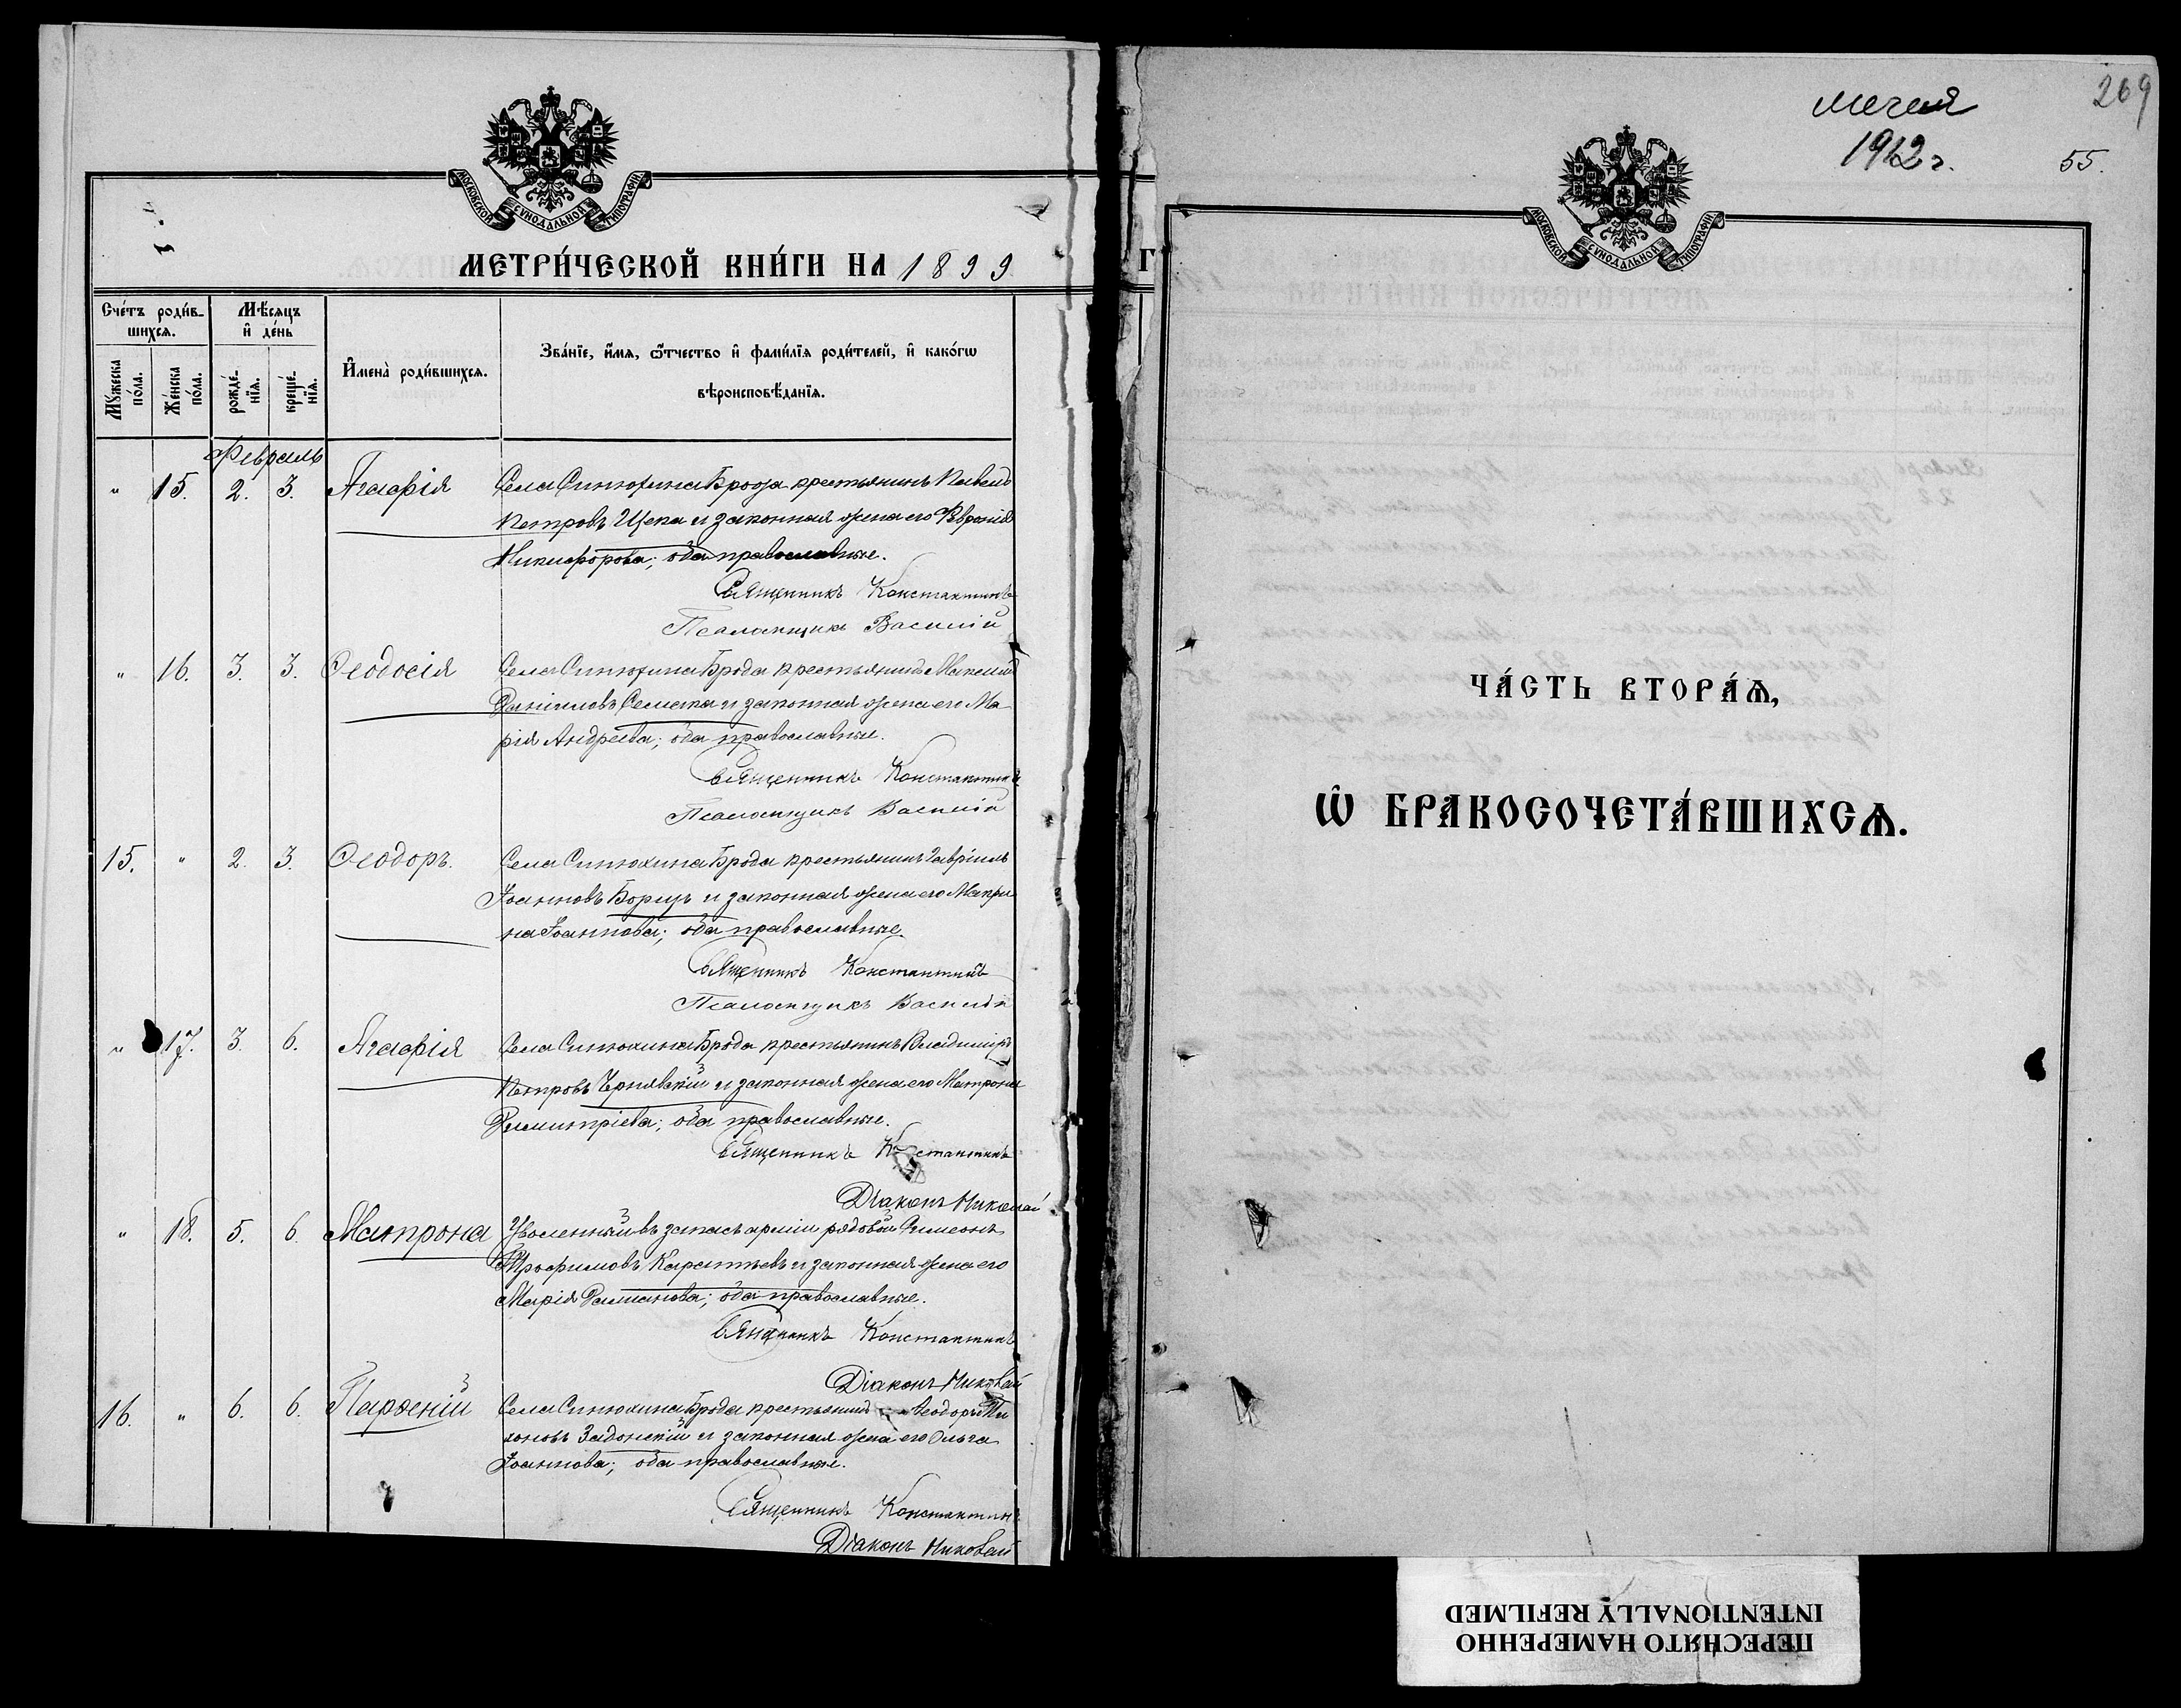 МОСКОВСКОЙ СУНОДАЛЬНОЙ ТИПОГРАФІИ
МЕТРИ́ЧЕСКОЙ КНИ́ГИ НА 1899
Сче́тъ роди́в-
шихсѧ.
Мѣ́сяцъ
и҆ де́нь
И҆мена̀ роди́вшихсѧ.
Зва́нїе, и҆́мѧ, ѻ҆́тчество и҆ фами́лїѧ роди́телей, и҆ како́гѡ
вѣроисповѣ́данїѧ.
Мꙋ́жеска по́ла.
Же́нска по́ла.
рожде́-нїѧ.
креще́-нїѧ.
Февраль
" 15. 2. 3. Агафія Села Синюхина Брода крестьянинъ Павелъ
Петровъ Щепа и законная жена его Февронія
Никифорова; оба православные.
Священникъ Константинъ
Псаломщикъ Василій
" 16. 3. 3. Ѳеодосія Села Синюхина Брода крестьянинъ Максимъ
Даніиловъ и законная жена его Ма
рія Андреева; оба православные.
Священникъ Константинъ
Псаломщикъ Василій
15. " 2. 3. Ѳеодоръ. Села Синюхина Брода крестьянинъ Гавріилъ
Іоанновъ Борщъ и законная жена его Макри
на Іоаннова; оба православные.
Священникъ Константинъ
Псаломщикъ Василій
" 17. 3. 6. Агафія Села Синюхина Брода крестьянинъ Владиміръ
Петровъ Чернявскій и законная жена его Матрона
Димитріева; оба православные.
Священникъ Константинъ
Діаконъ Николай
" 18. 5. 6. Матрона Уволенный въ запасъ арміи рядовой Симеонъ
Трофимовъ и законная жена его
Марія Даміанова; оба православные.
Священникъ Константинъ
Діаконъ Николай
16. " 6. 6. Парѳеній Села Синюхина Брода крестьянинъ Ѳеодоръ Ти
хоновъ Задонскій и законная жена его Ольга
Іоаннова; оба православные.
Священникъ Константинъ
Діаконъ Николай
Г
269
1912 г.
55.
МОСКОВСКОЙ СУНОДАЛЬНОЙ ТИПОГРАФІИ
ЧА́СТЬ ВТОРА́Ѧ,
Ѡ҆ БРАКОСОЧЕТА́ВШИХСѦ.
ПЕРЕСНЯТО НАМЕРЕННО
INTENTIONALLY REFILMED